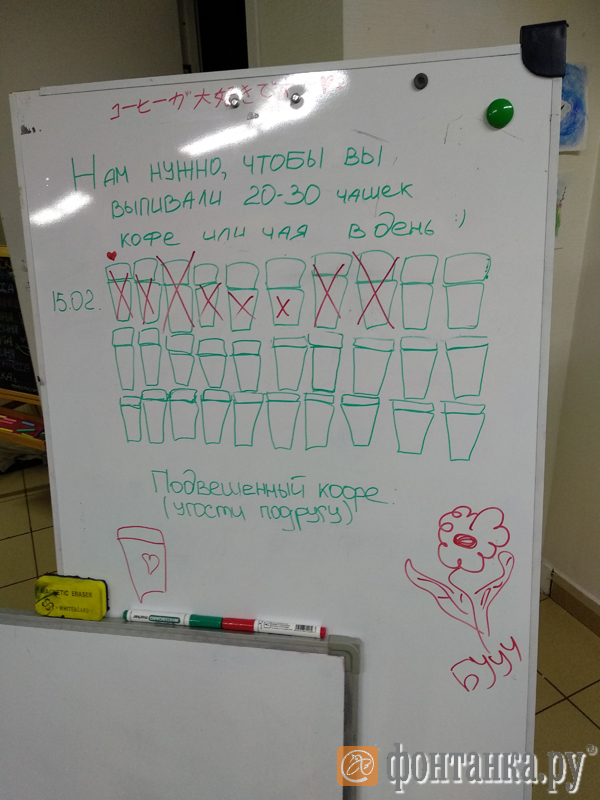 コーヒーが大好きで
Нам нужно, чтобы вы
выпивали 20-30 чашек
кофе или чая в день :)
15.02.
Подвешенный кофе:
(угости подругу)
Бууу
MAGNETIC ERASER
WHITEBOARD
фонтанка.ру